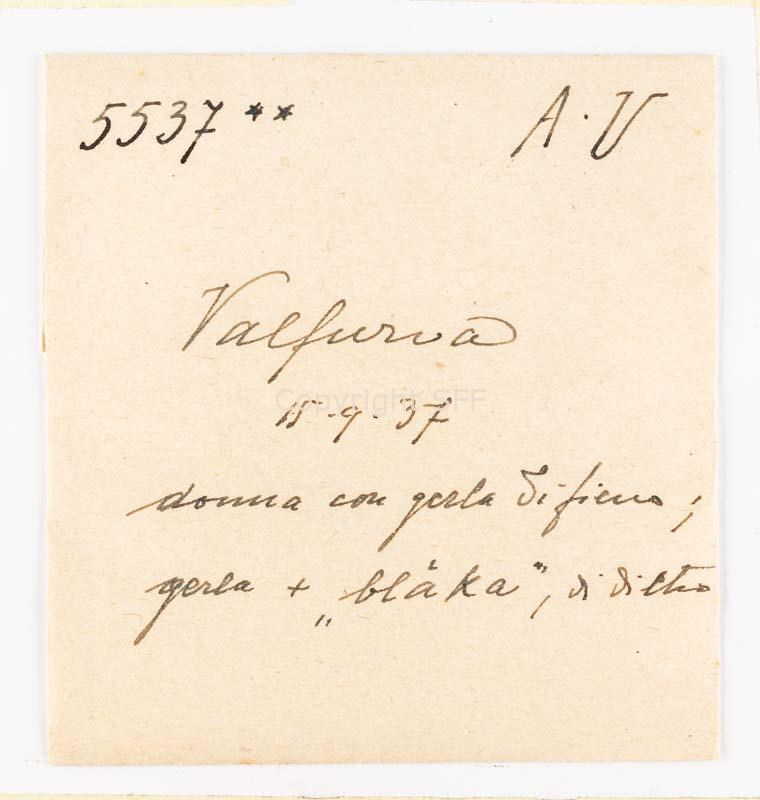 5537 ** A. V
Valfurva
Copyright SFF
15-9-37
donna con gerla di fieno;
gerla + „bláka”, di dietro